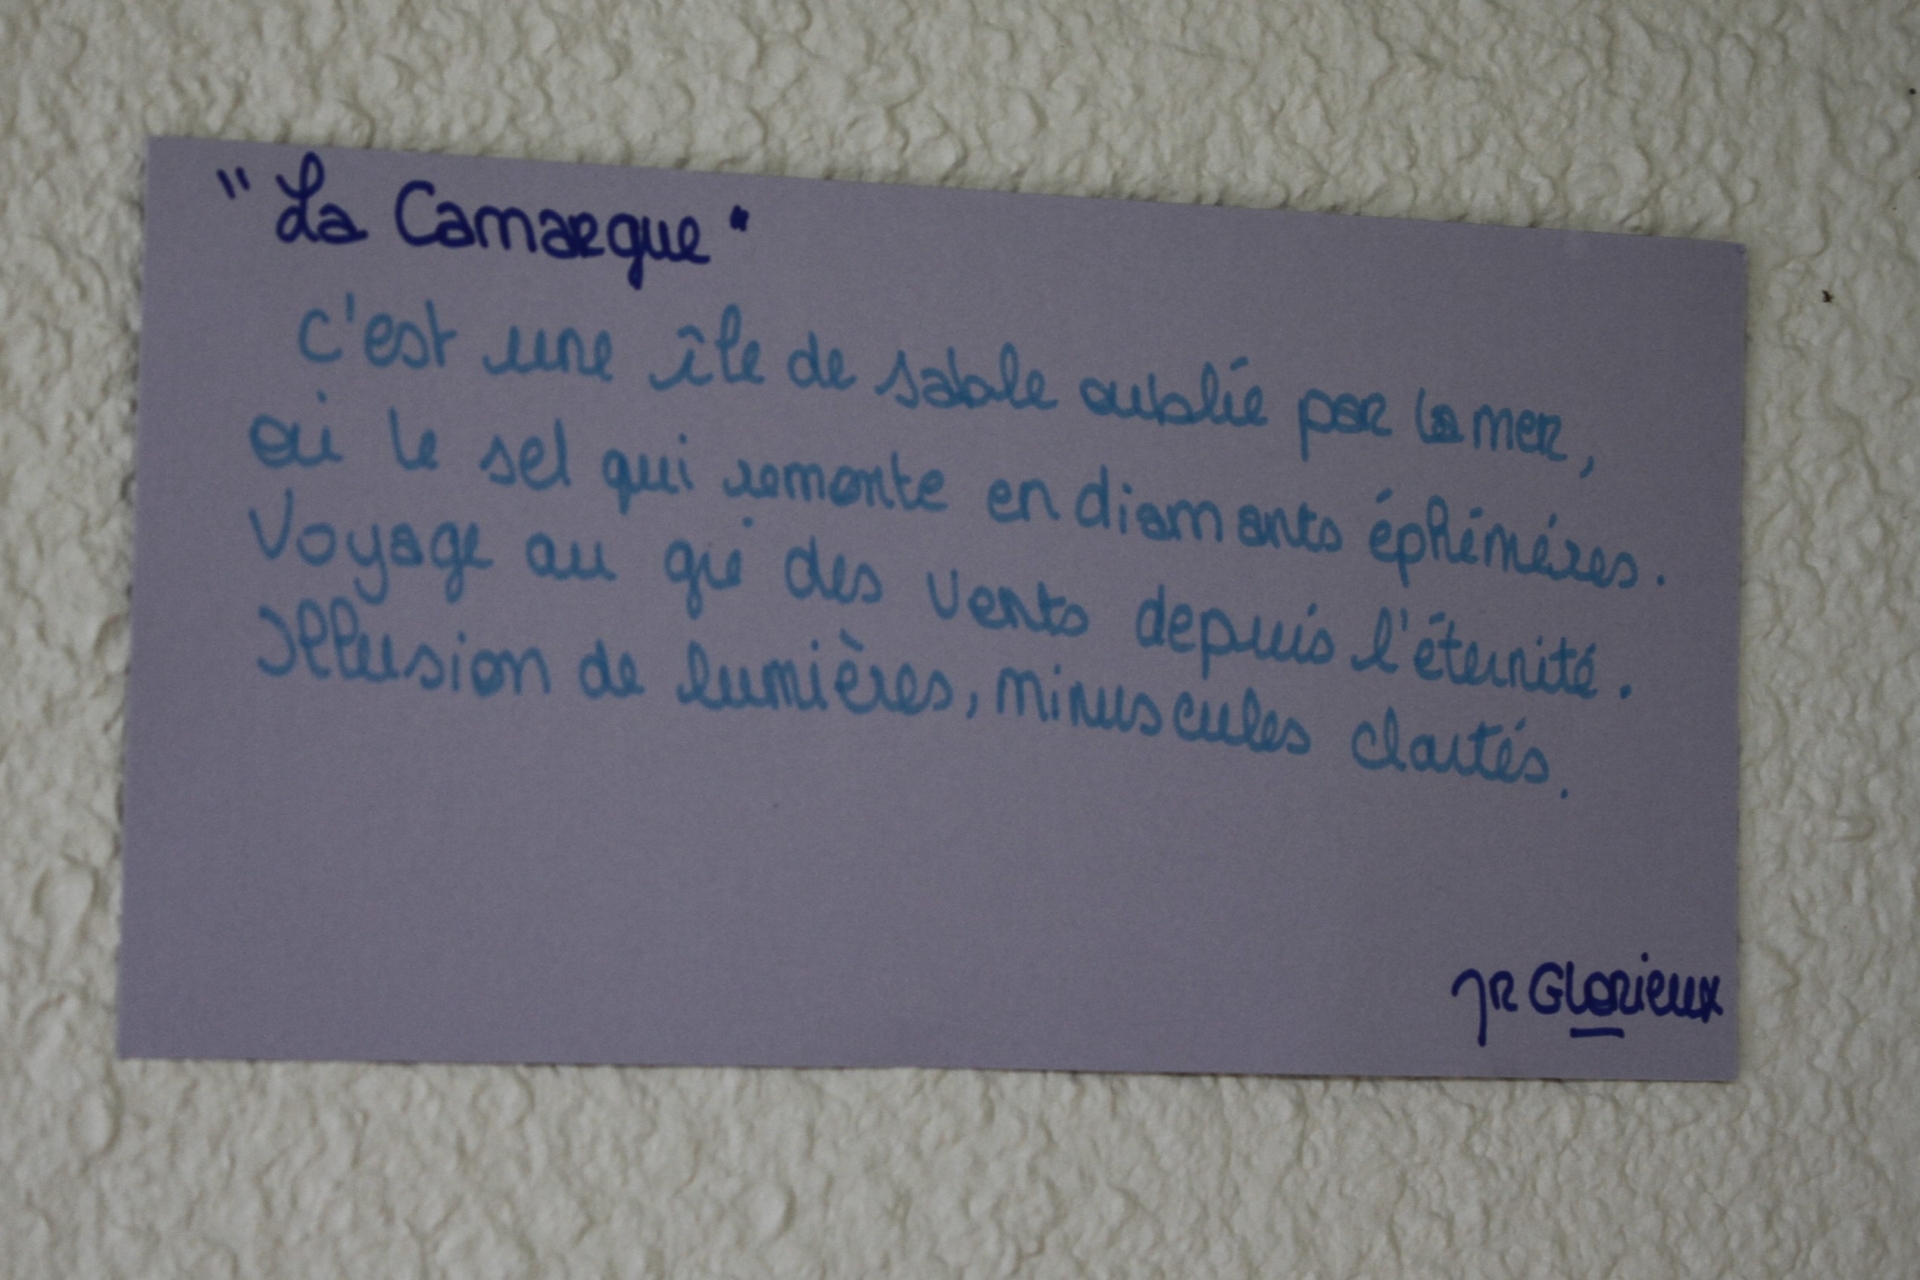 "La Camargue"
C'est une île de sable oubliée par la mer,
où le sel qui remonte en diamants éphémères.
Voyage au gré des vents depuis l'éternité.
Illusion de lumières, minuscules clartés.
JR GLORIEUX